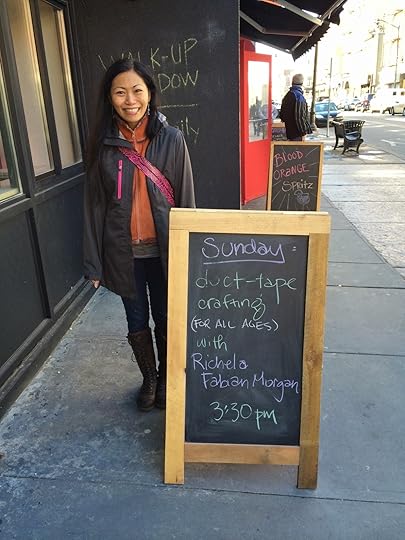 WALK-UP
Daily
BLOOD
ORANGE
Spritz
Sunday :
duct-tape
crafting
(FOR ALL AGES)
with
Richela
Fabian Morgan
3:30pm